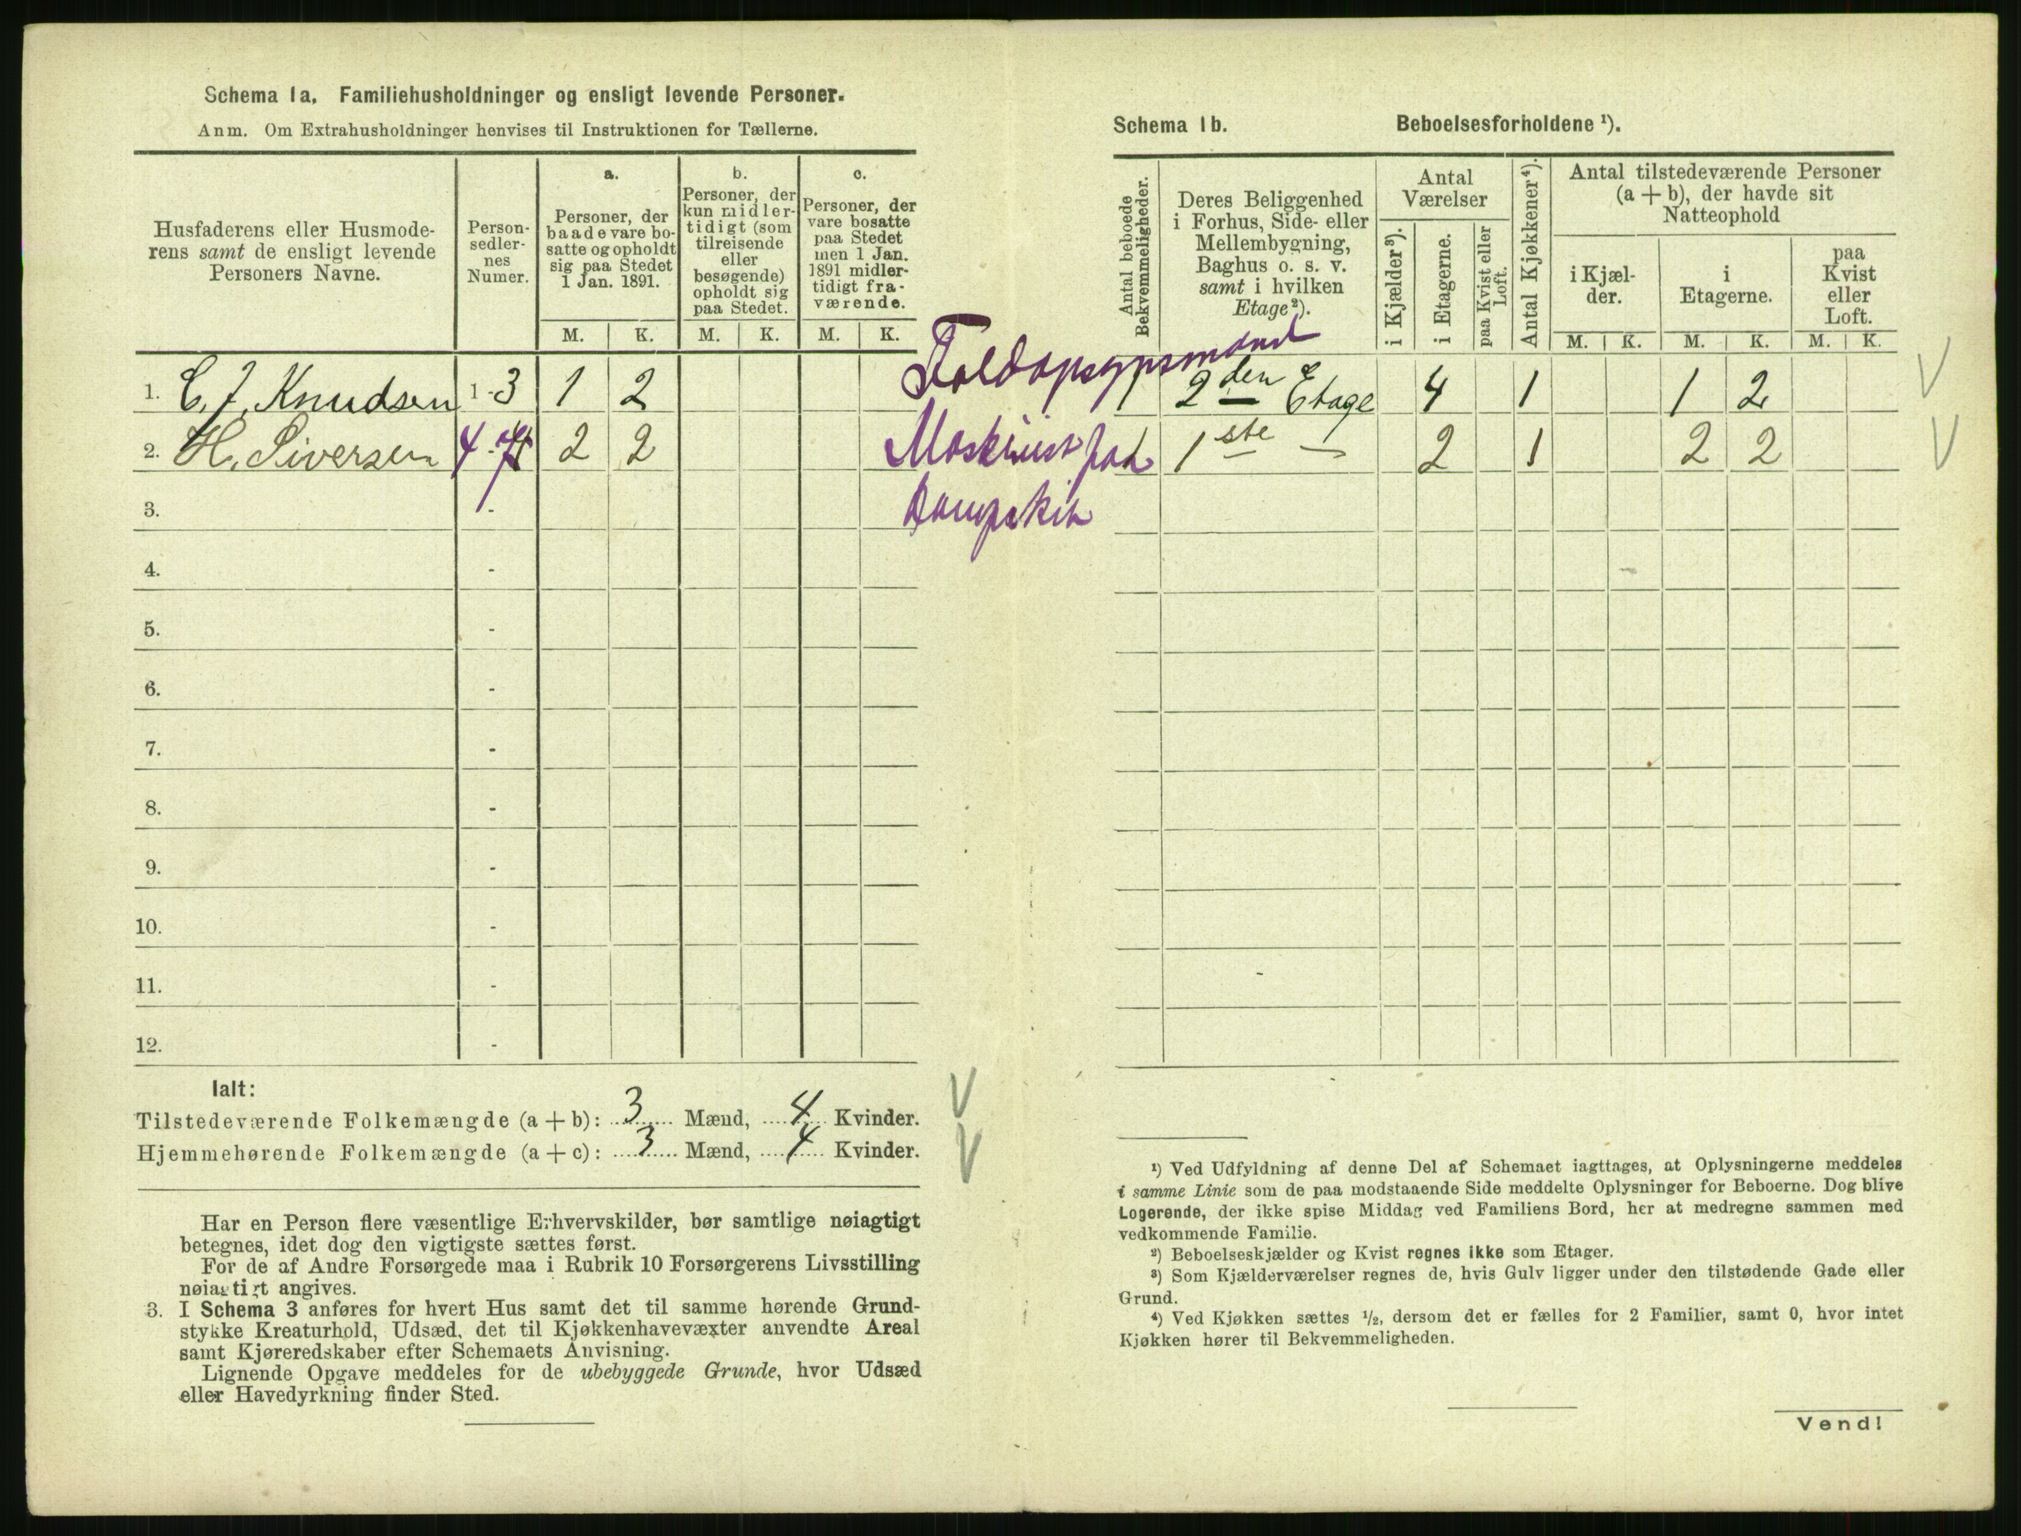 Schema 1a. Familiehusholdninger og ensligt levende Personer.
Anm. Om Extrahusholdninger henvises til Instruktionen for Tællerne.
Husfaderens eller Husmode-
rens samt de ensligt levende
Personers Navne.
Person-
sedler-
nes
Numer.
a.
Personer, der
baade vare bo-
satte og opholdt
sig paa Stedet
1 Jan. 1891.
b.
Personer, der
kun midler-
tidigt (som
tilreisende
eller
besøgende)
opholdt sig
paa Stedet.
c.
Personer, der
vare bosatte
paa Stedet
men 1 Jan.
1891 midler-
tidigt fra-
værende.
M. K. M. K. M. K.
1. C. J. Knudsen 1-3 1 2
2. H. Siversen 4-7 2 2
3. -
4. -
5. -
6. -
7. -
8. -
9. -
10. -
11. -
12. -
Ialt:
Tilstedeværende Folkemængde (a + b): 3 Mænd, 4 Kvinder.
Hjemmehørende Folkemængde (a + c): 3 Mænd, 4 Kvinder.
Har en Person flere væsentlige Erhvervskilder, bør samtlige nøiagtigt
betegnes, idet dog den vigtigste sættes først.
For de af Andre Forsørgede maa i Rubrik 10 Forsørgerens Livsstilling
nøiagtigt angives.
3. I Schema 3 anføres for hvert Hus samt det til samme hørende Grund-
stykke Kreaturhold, Udsæd, det til Kjøkkenhavevæxter anvendte Areal
samt Kjøreredskaber efter Schemaets Anvisning.
Lignende Opgave meddeles for de ubebyggede Grunde, hvor Udsæd
eller Havedyrkning finder Sted.
Schema 1b. Beboelsesforholdene ¹).
Antal beboede
Bekvemmeligheder.
Deres Beliggenhed
i Forhus, Side- eller
Mellembygning,
Baghus o. s. v.
samt i hvilken
Etage²).
Antal
Værelser
i Kjælder³).
i Etagerne.
paa Kvist eller
Loft.
Antal Kjøkkener⁴).
Antal tilstedeværende Personer
(a + b), der havde sit
Natteophold
i Kjæl-
der.
i
Etagerne.
paa
Kvist
eller
Loft.
M. K. M. K. M. K.
Toldopsypsmand
1 2den Etage 4 1 1 2
Maskinist paa
1 1ste — 2 1 2 2
Dampskib
¹) Ved Udfyldning af denne Del af Schemaet iagttages, at Oplysningerne meddeles
i samme Linie som de paa modstaaende Side meddelte Oplysninger for Beboerne. Dog blive
Logerende, der ikke spise Middag ved Familiens Bord, her at medregne sammen med
vedkommende Familie.
²) Beboelseskjælder og Kvist regnes ikke som Etager.
³) Som Kjælderværelser regnes de, hvis Gulv ligger under den tilstødende Gade eller
Grund.
⁴) Ved Kjøkken sættes ½, dersom det er fælles for 2 Familier, samt 0, hvor intet
Kjøkken hører til Bekvemmeligheden.
Vend!